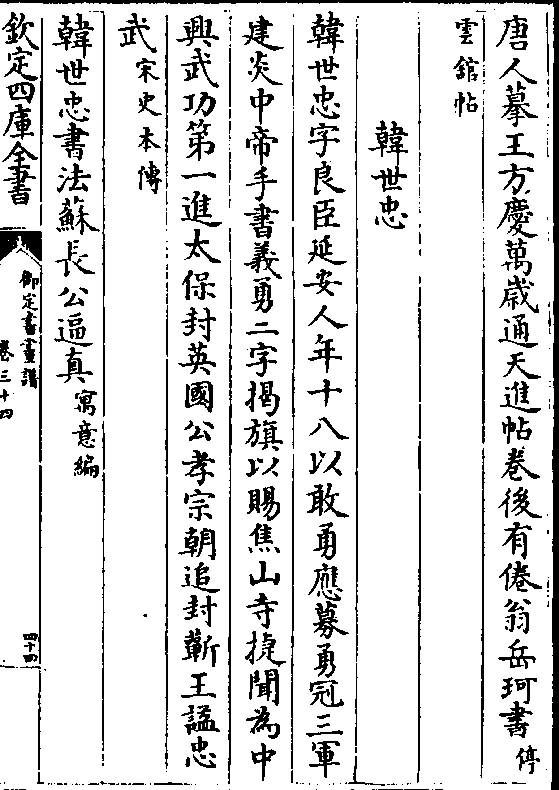 唐人摹王方慶萬歲通天進帖卷後有倦翁岳珂書停
雲館帖
韓世忠
韓世忠字良臣延安人年十八以敢勇應募勇冠三軍
建炎中帝手書義勇二字揭旗以賜焦山寺捷聞為中
興武功第一進太保封英國公孝宗朝追封蘄王諡忠
武宋史本傳
韓世忠書法蘇長公逼真寓意編
欽定四庫全書
御定書畫譜
卷三十四
四十四